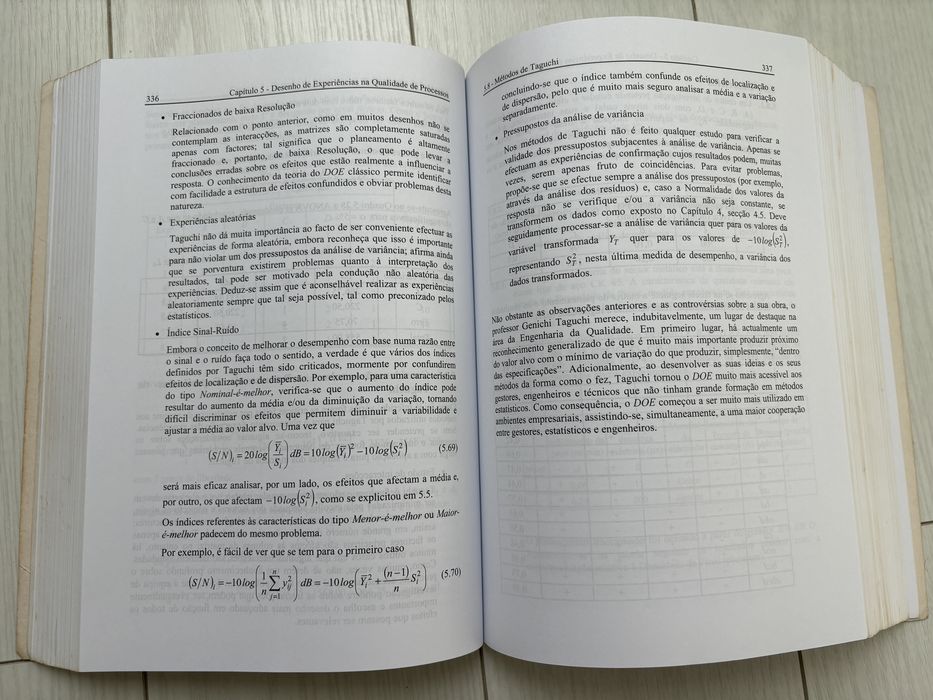 336
Capítulo 5 - Desenho de Experiências na Qualidade de Processos
• Fraccionados de baixa Resolução
Relacionado com o ponto anterior, como em muitos desenhos não se
contemplam as interacções, as matrizes são completamente saturadas
apenas com factores; tal significa que o planeamento é altamente
fraccionado e, portanto, de baixa Resolução, o que pode levar a
conclusões erradas sobre os efeitos que estão realmente a influenciar a
resposta. O conhecimento da teoria do DOE clássico permite identificar
com facilidade a estrutura de efeitos confundidos e obviar problemas desta
natureza.
• Experiências aleatórias
Taguchi não dá muita importância ao facto de ser conveniente efectuar as
experiências de forma aleatória, embora reconheça que isso é importante
para não violar um dos pressupostos da análise de variância; afirma ainda
que se porventura existirem problemas quanto à interpretação dos
resultados, tal pode ser motivado pela condição não aleatória das
experiências. Deduz-se assim que é aconselhável realizar as experiências
aleatoriamente sempre que tal seja possível, tal como preconizado pelos
estatísticos.
• Índice Sinal-Ruído
Embora o conceito de melhorar o desempenho com base numa razão entre
o sinal e o ruído faça todo o sentido, a verdade é que vários dos índices
definidos por Taguchi têm sido criticados, mormente por confundirem
efeitos de localização e de dispersão. Por exemplo, para uma característica
do tipo Nominal-é-melhor, verifica-se que o aumento do índice pode
resultar do aumento da média e/ou da diminuição da variação, tornando
difícil discriminar os efeitos que permitem diminuir a variabilidade e
ajustar a média ao valor alvo. Uma vez que
(S/N)ᵢ = 20log(Ȳᵢ/Sᵢ) dB = 10log(Ȳᵢ)² − 10log(Sᵢ²) (5.69)
será mais eficaz analisar, por um lado, os efeitos que afectam a média e,
por outro, os que afectam −10log(Sᵢ²), como se explicitou em 5.5.
Os índices referentes às características do tipo Menor-é-melhor ou Maior-
é-melhor padecem do mesmo problema.
Por exemplo, é fácil de ver que se tem para o primeiro caso
(S/N)ᵢ = −10log(1/n ∑ⱼ₌₁ⁿ yᵢⱼ²) dB = −10log(Ȳᵢ² + (n−1)/n Sᵢ²) (5.70)
5.8 - Métodos de Taguchi
337
concluindo-se que o índice também confunde os efeitos de localização e
de dispersão, pelo que é muito mais seguro analisar a média e a variação
separadamente.
• Pressupostos da análise de variância
Nos métodos de Taguchi não é feito qualquer estudo para verificar a
validade dos pressupostos subjacentes à análise de variância. Apenas se
efectuam as experiências de confirmação cujos resultados podem, muitas
vezes, serem apenas fruto de coincidências. Para evitar problemas,
propõe-se que se efectue sempre a análise dos pressupostos (por exemplo,
através da análise dos resíduos) e, caso a Normalidade dos valores da
resposta não se verifique e/ou a variância não seja constante, se
transformem os dados como exposto no Capítulo 4, secção 4.5. Deve
seguidamente processar-se a análise de variância quer para os valores da
variável transformada Y_T quer para os valores de −10log(S_T²),
representando S_T², nesta última medida de desempenho, a variância dos
dados transformados.
Não obstante as observações anteriores e as controvérsias sobre a sua obra, o
professor Genichi Taguchi merece, indubitavelmente, um lugar de destaque na
área da Engenharia da Qualidade. Em primeiro lugar, há actualmente um
reconhecimento generalizado de que é muito mais importante produzir próximo
do valor alvo com o mínimo de variação do que produzir, simplesmente, "dentro
das especificações". Adicionalmente, ao desenvolver as suas ideias e os seus
métodos da forma como o fez, Taguchi tornou o DOE muito mais acessível aos
gestores, engenheiros e técnicos que não tinham grande formação em métodos
estatísticos. Como consequência, o DOE começou a ser muito mais utilizado em
ambientes empresariais, assistindo-se, simultaneamente, a uma maior cooperação
entre gestores, estatísticos e engenheiros.